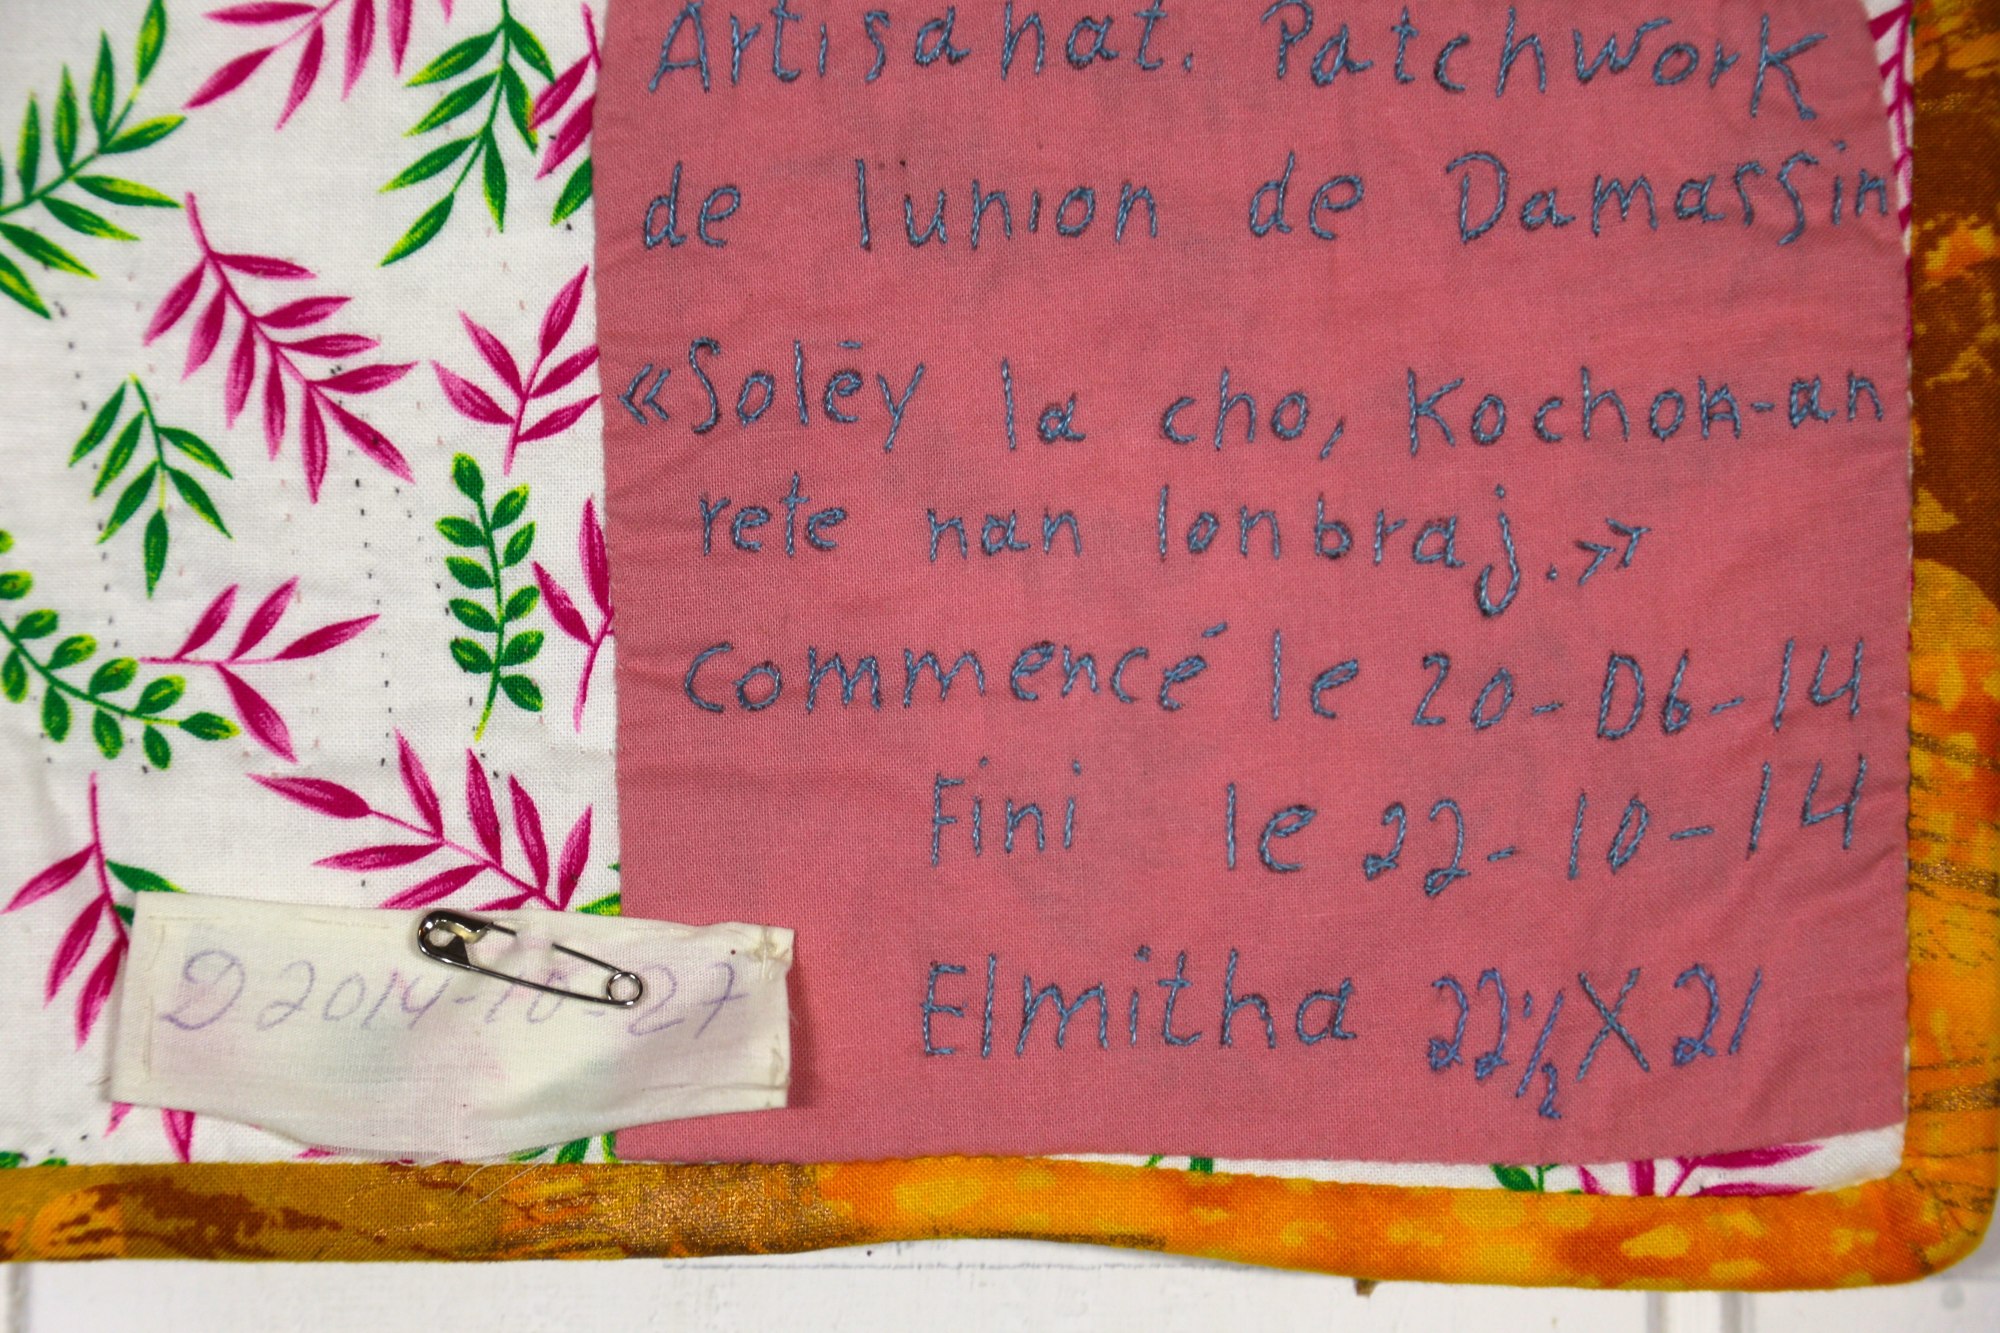 Artisanat. Patchwork
de lunion de Damassin
«Soléy la cho, Kochon-an
rete nan lonbraj.»
Commencé le 20-06-14
Fini le 22-10-14
Elmitha 22 1/2 X 21
D2014-10-27